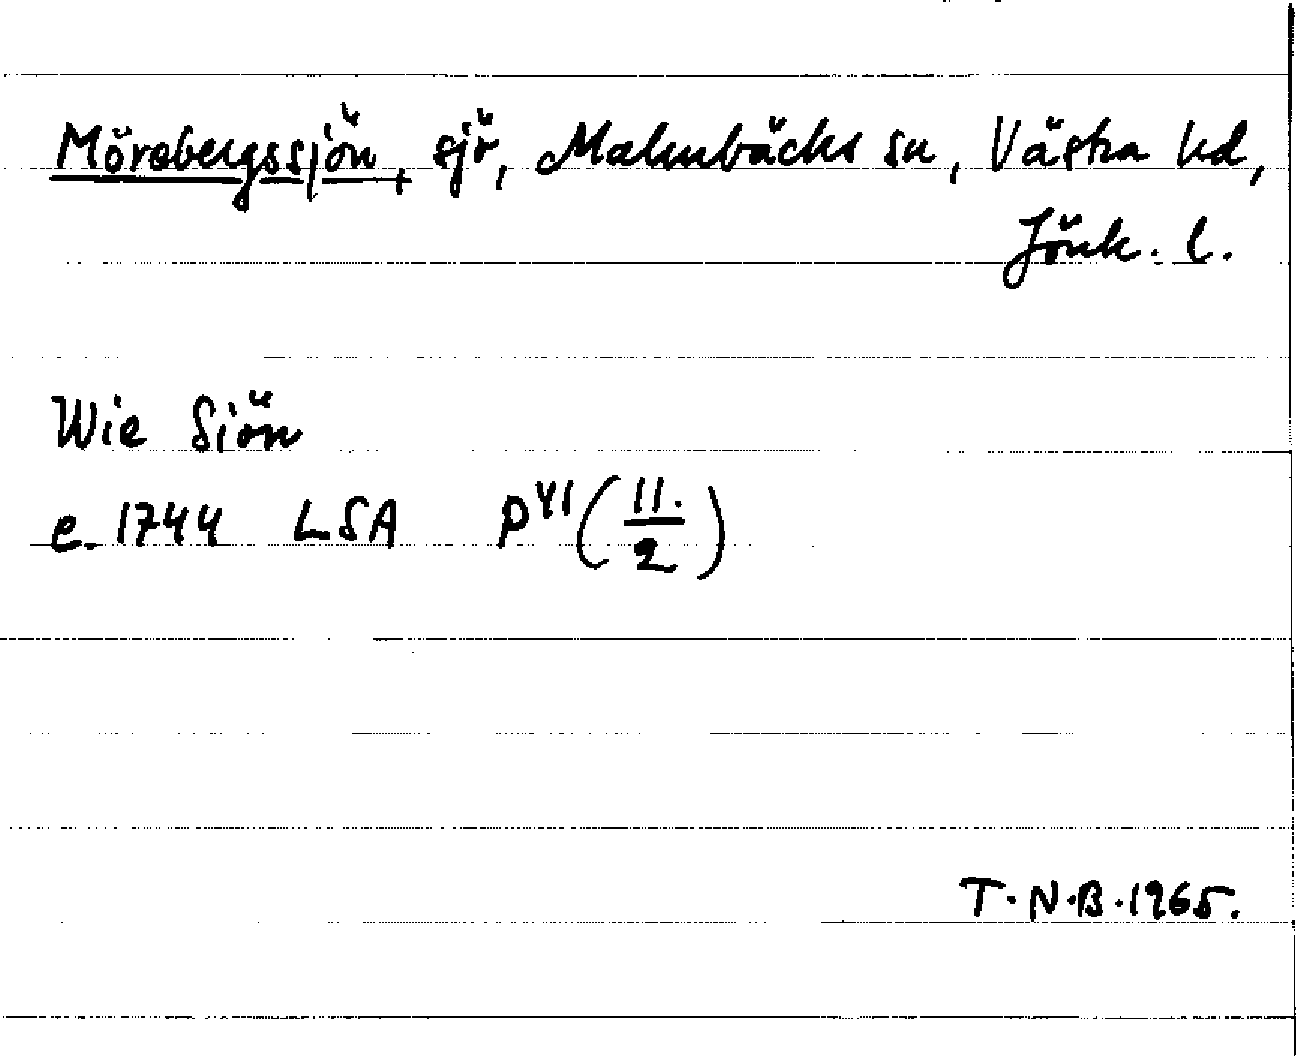 Mörebergssjön, sjö, Malmbäcks sn, Västra hd,
Jönk. l.
Wie Siön
e. 1744 LSA P41 (11./2)
T.N.B. 1965.